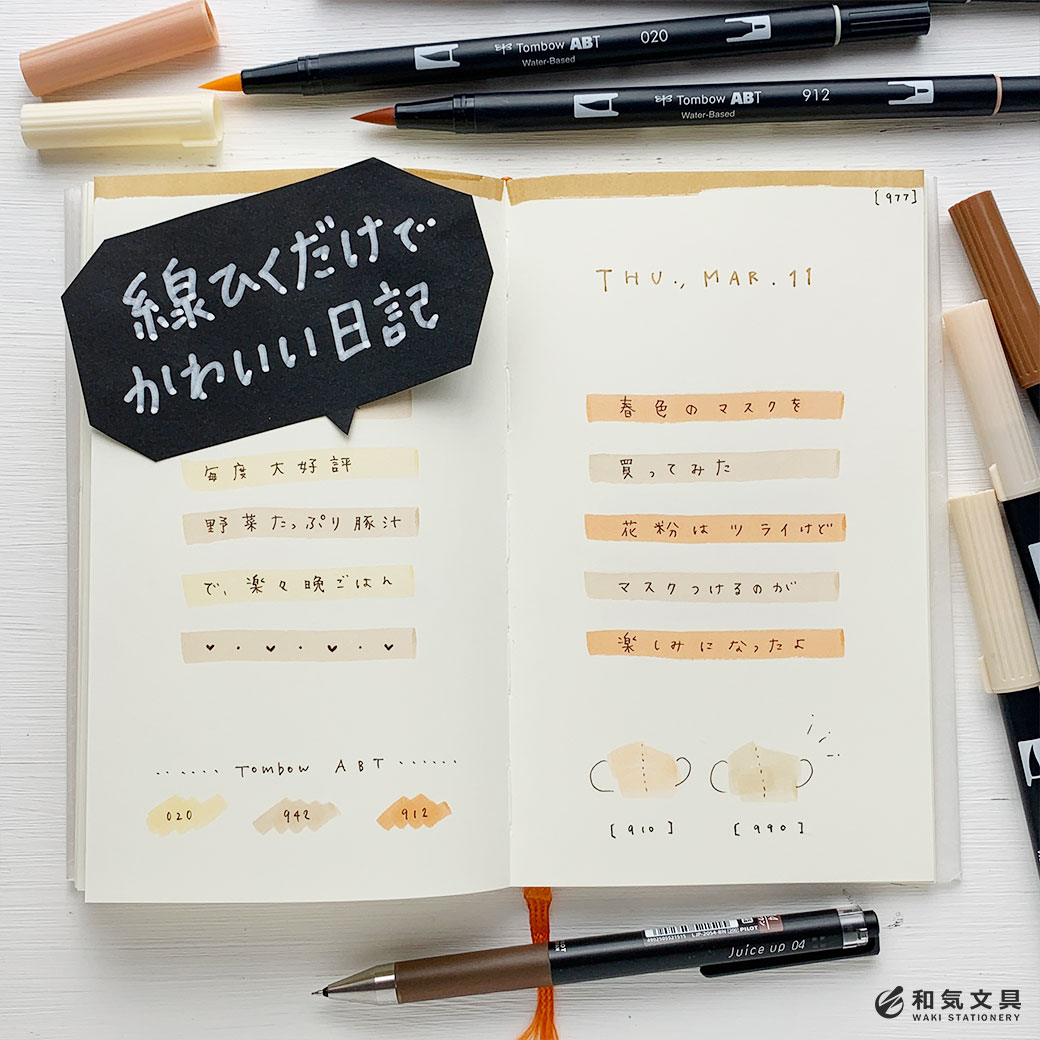 Tombow ABT
020
Water-Based
Tombow ABT
912
Water-Based
線ひくだけで
かわいい日記
毎度大好評
野菜たっぷり豚汁
で、楽々晩ごはん
Tombow ABT
020
942
912
[977]
THU., MAR. 11
春色のマスクを
買ってみた
花粉はツライけど
マスクつけるのが
楽しみになったよ
[910]
[990]
PILOT
Juice up 04
和気文具
WAKI STATIONERY